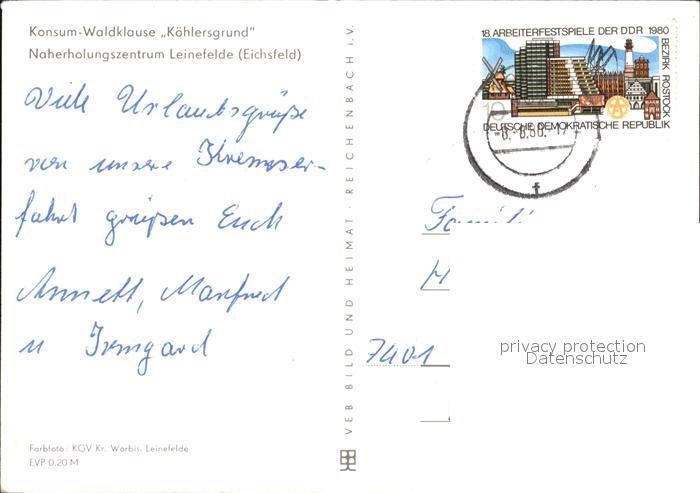 Konsum-Waldklause „Köhlersgrund"
Naherholungszentrum Leinefelde (Eichsfeld)
Viele Urlaubsgrüße
von unsere Kremser-
fahrt grüßen Euch
Annett, Manfred
u Irmgard
Farbfoto: KGV Kr. Worbis, Leinefelde
EVP 0,20 M
VEB BILD UND HEIMAT · REICHENBACH i. V.
18. ARBEITERFESTSPIELE DER DDR 1980
BEZIRK ROSTOCK
10
DEUTSCHE DEMOKRATISCHE REPUBLIK
f
7401
privacy protection
Datenschutz